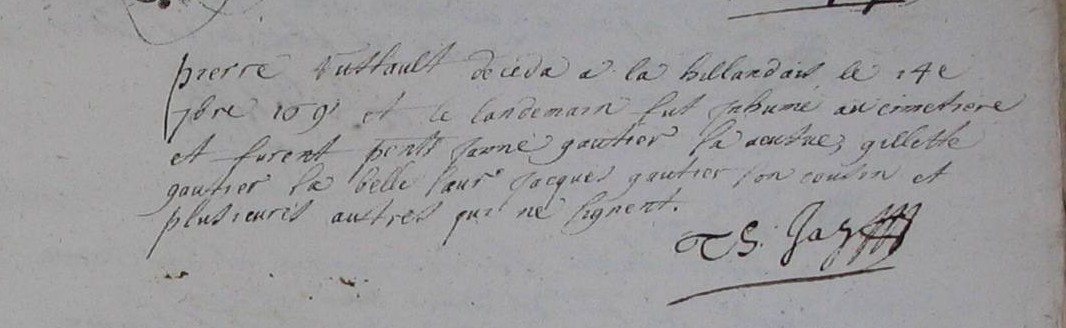 pierre deceda a la hillandais le 14e
7bre 169 et le landemain fut inhumé au cimetiere
et furent pnts janne gautier sa veufue, gillette
gautier sa belle sœur jacques gautier son cousin et
plusieures autres qui ne signent.